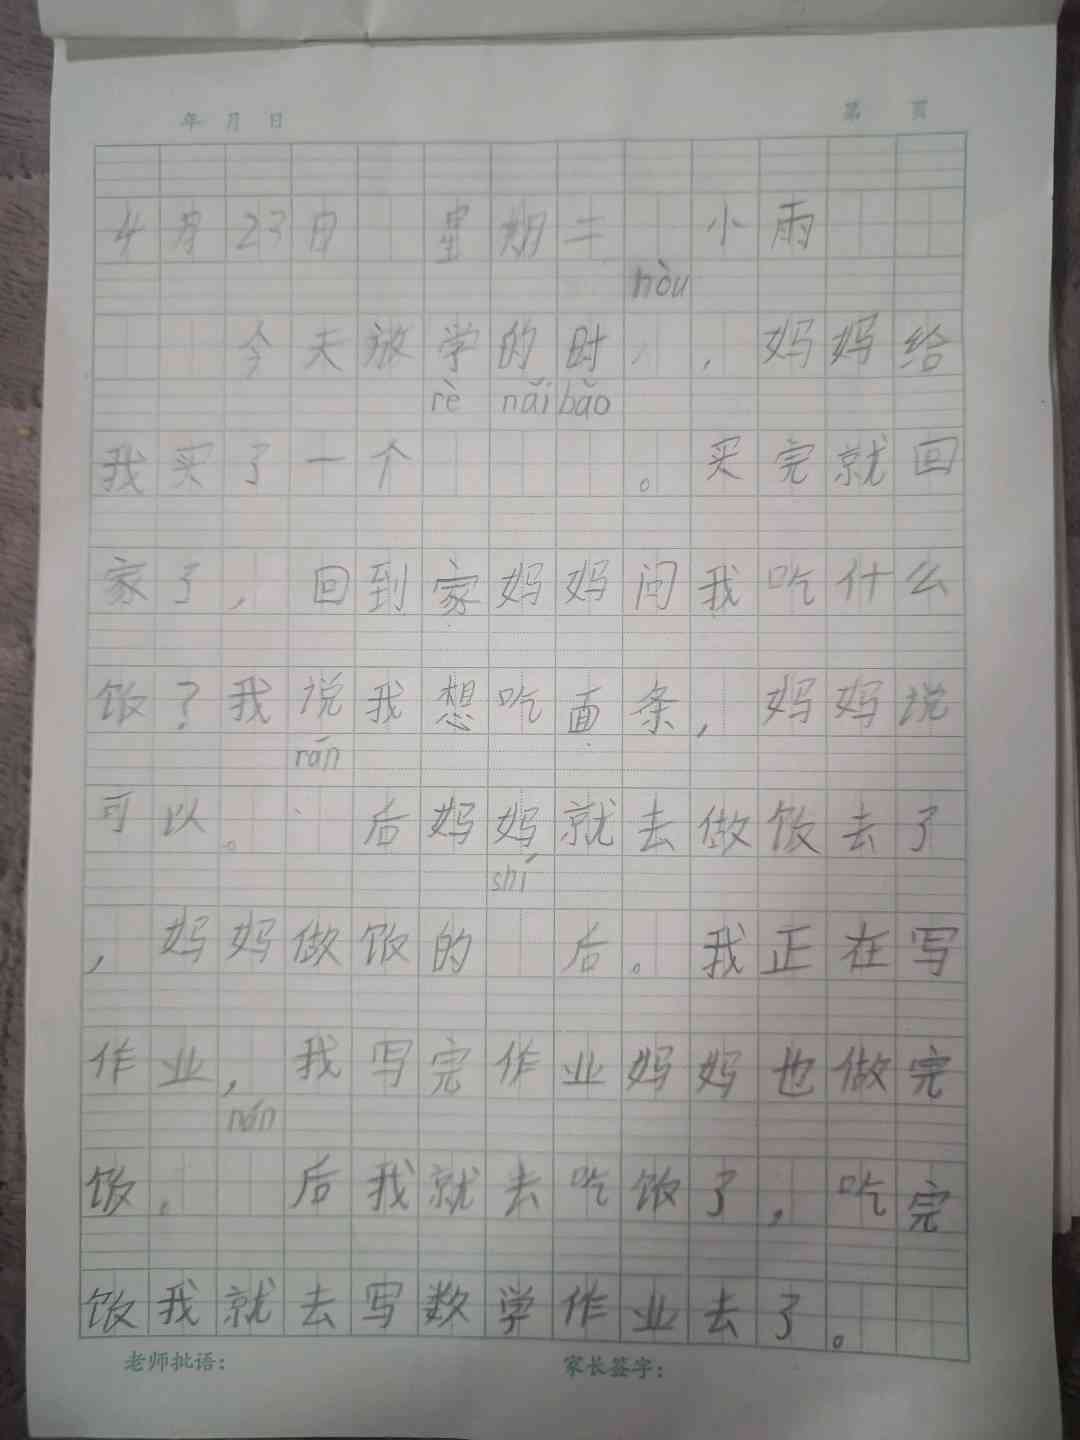 年 月 日 第 页
4月23日 星期二 小雨
hòu
今天放学的时 ，妈妈给
rè nǎi bǎo
我买了一个 。买完就回
家了，回到家妈妈问我吃什么
饭？我说我想吃面条，妈妈说
rán
可以。 后妈妈就去做饭去了
shí
，妈妈做饭的 后。我正在写
作业，我写完作业妈妈也做完
rán
饭。 后我就去吃饭了，吃完
饭我就去写数学作业去了。
老师批语： 家长签字：